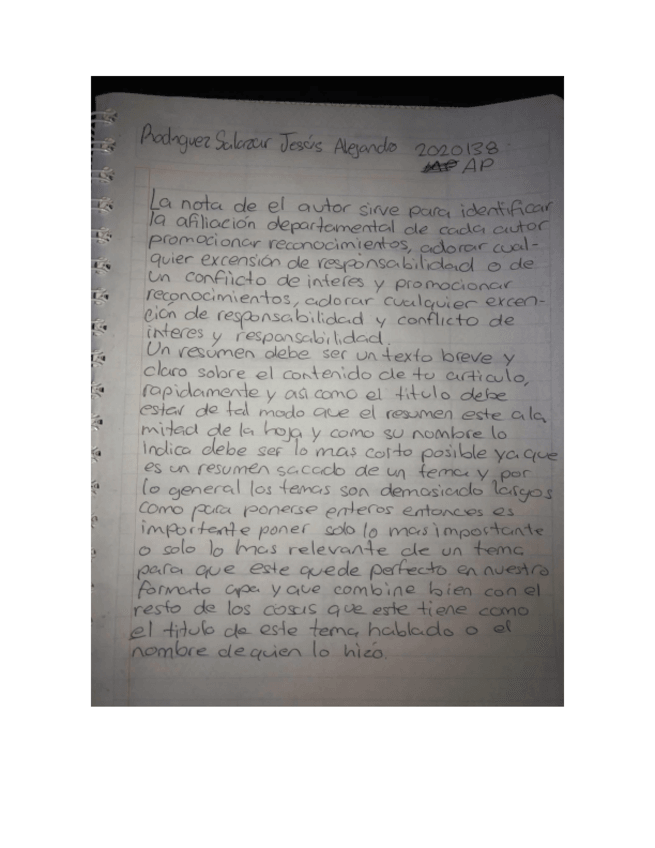 Rodriguez Salazar Jesús Alejando 2020138
AP
La nota de el autor sirve para identificar
la afiliación departamental de cada autor
promocionar reconocimientos, adorar cual-
quier excensión de responsabilidad o de
un conflicto de interes y promocionar
reconocimientos, adorar cualquier excen-
ción de responsabilidad y conflicto de
interes y responsabilidad.
Un resumen debe ser un texto breve y
claro sobre el contenido de tu articulo,
rapidamente y asi como el titulo debe
estar de tal modo que el resumen este a la
mitad de la hoja y como su nombre lo
indica debe ser lo mas corto posible ya que
es un resumen sacado de un tema y por
lo general los temas son demasiado largos
como para ponerse enteros entonces es
importente poner solo lo mas importante
o solo lo mas relevante de un tema
para que este quede perfecto en nuestro
formato apa y que combine bien con el
resto de los cosas que este tiene como
el titulo de este tema hablado o el
nombre de quien lo hizo.